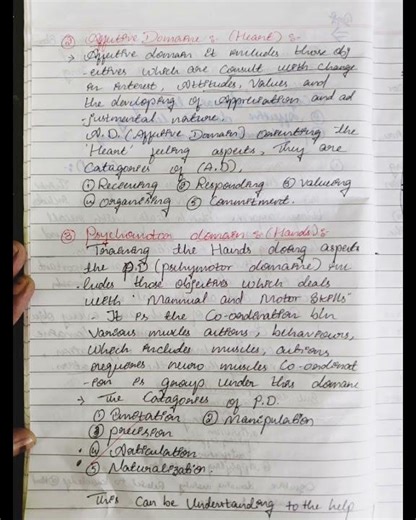 ② Affective Domain :- (Heart) :-
→ Affective domain It includes those obj
-ectives which are consult with change
in Interest, Attitudes, Values and
the developing of Appreciation and ad
-justmental nature.
A.D. (Affective Domain) the
'Heart' feeling aspects, They are
Catagories of (A.D),
① Receiving ② Responding ③ Valueing
④ organising ⑤ Commitment.
③ Psychomotor domain :- (Hands) :-
Trainning the Hands doing aspects
the P.D (pshymotor domaine) In
-ludes those objectives which deals
with 'Mannual and Motor skills'
- It is the Co-ordination b/w
Various muxles auctions, behaviours,
which includes muscles, auctions
requires neuro muscles Co-oodinat
-ion is group under this domane
→ The Catagories of P.D.
① Emotation ② Manipulation
③ precision
④ Articulation
⑤ Naturalization.
This can be Understanding to the help